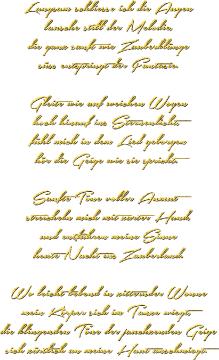 Langsam schliesse ich die Augen
lausche still der Melodie,
die ganz sanft wie Zauberklänge
eine entspringt der Fantasie.

Gleite wie auf weichen Wogen
hoch hinauf ins Sternenlicht,
fühl mich in dem Lied geborgen
hör die Geige wie sie spricht.

Sanfte Töne voller Anmut
streicheln mich mit zarter Hand,
und entführen meine Sinne
heute Nacht ins Zauberland.

Wo leicht bebend in zitternder Wonne
mein Körper sich im Tanze wiegt,
die klingenden Töne der jauchzenden Geige
sich zärtlich an meine Haut anschmiegt.